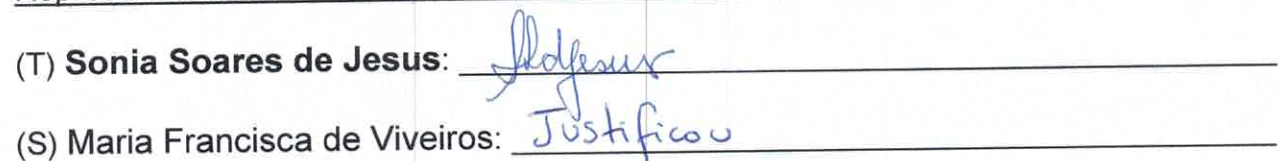 (T) Sonia Soares de Jesus: SSdJesus
(S) Maria Francisca de Viveiros: Justificou